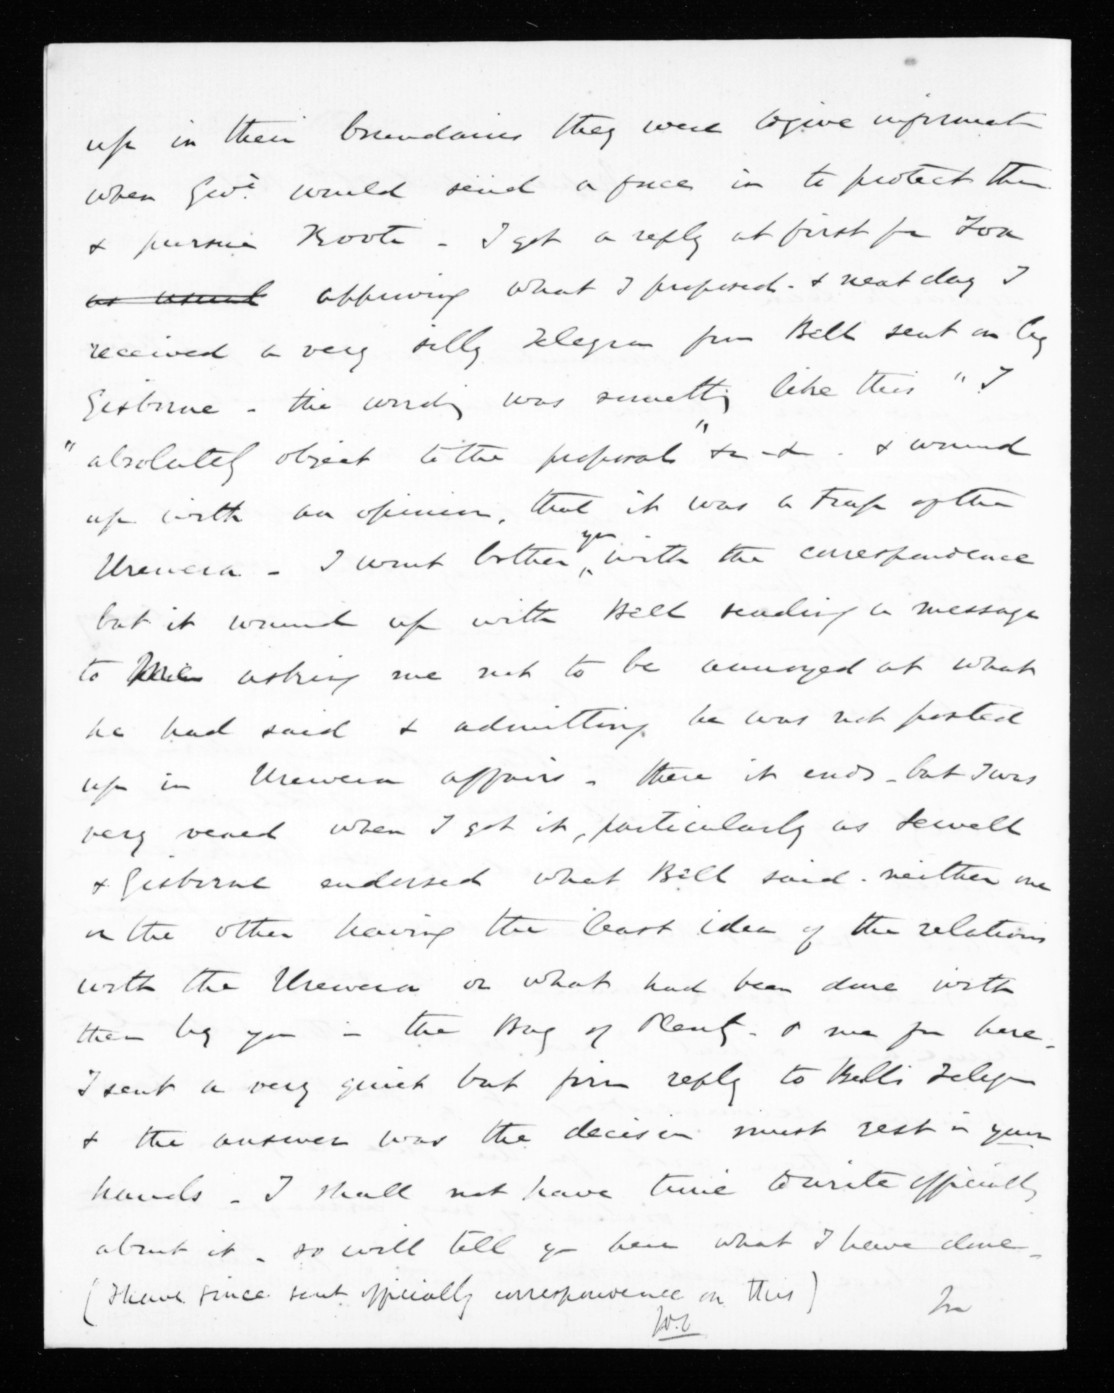 up in their boundaries they were to give informat
when Govt. would send a force in to protect them
& pursue Kooti - I got a reply at first fm Fox
as usual approving what I proposed - & next day I
received a very silly Telegram from Bell sent on by
Gisborne - the wording was something like this " I
" absolutely object to the proposals " &c - &c . & wound
up with an opinion, that it was a trap of the
Urewera - I wont bother you with the correspondence
but it wound up with Bell sending a message
to asking me not to be annoyed at what
he had said & admitting he was not posted
up in Urewera affairs - there it ends - but I was
very vexed when I got it, particularly as Sewell
& Gisborne endorsed what Bell said - neither one
or the other having the least idea of the relations
with the Urewera or what had been done with
them by you in the Bay of Plenty - & me fm here -
I sent a very quiet but firm reply to Bell's Telegm
& the answer was the decision must rest in your
hands - I shall not have time to write officially
about it - so will tell you here what I have done -
(I have since sent officially correspondence on this)